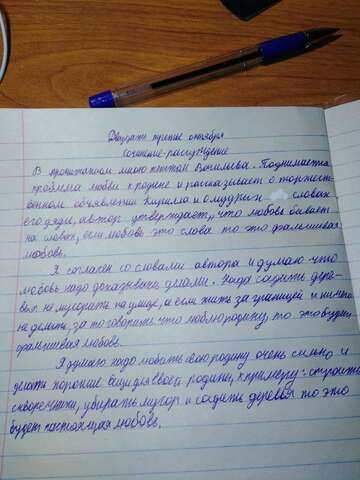 Двадцать третье октября
Сочинение-рассуждение
В прочитанном мною тексте Васильева. Поднимается
проблема любви к родине и рассказывает о торжест-
венном объявлении Кирилла и о мудрых словах
его дяди, автор утверждает, что любовь бывает
на словах, если любовь это слова то это фальшивая
любовь.
Я согласен со словами автора и думаю что
любовь надо доказывать делами. Надо садить дере-
вья не мусорить на улице, а если жить за границей и ничего
не делать, за то говорить что люблю родину, то это будет
фальшивая любовь.
Я думаю надо любить свою родину очень сильно и
делать хорошие вещи для своей родины, к примеру: строить
скворечники, убирать мусор и садить деревья то это
будет настоящая любовь.